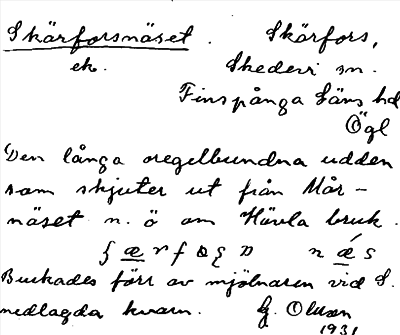 Skärforsnäset. Skärfors,
ek. Skedevi sn.
Finspånga Läns hd
Ögl
Den långa oregelbundna udden
som skjuter ut från Mår-
näset n. ö om Hävla bruk.
Brukades förr av mjölnaren vid S.
nedlagda kvarn. G. Olsson
1931